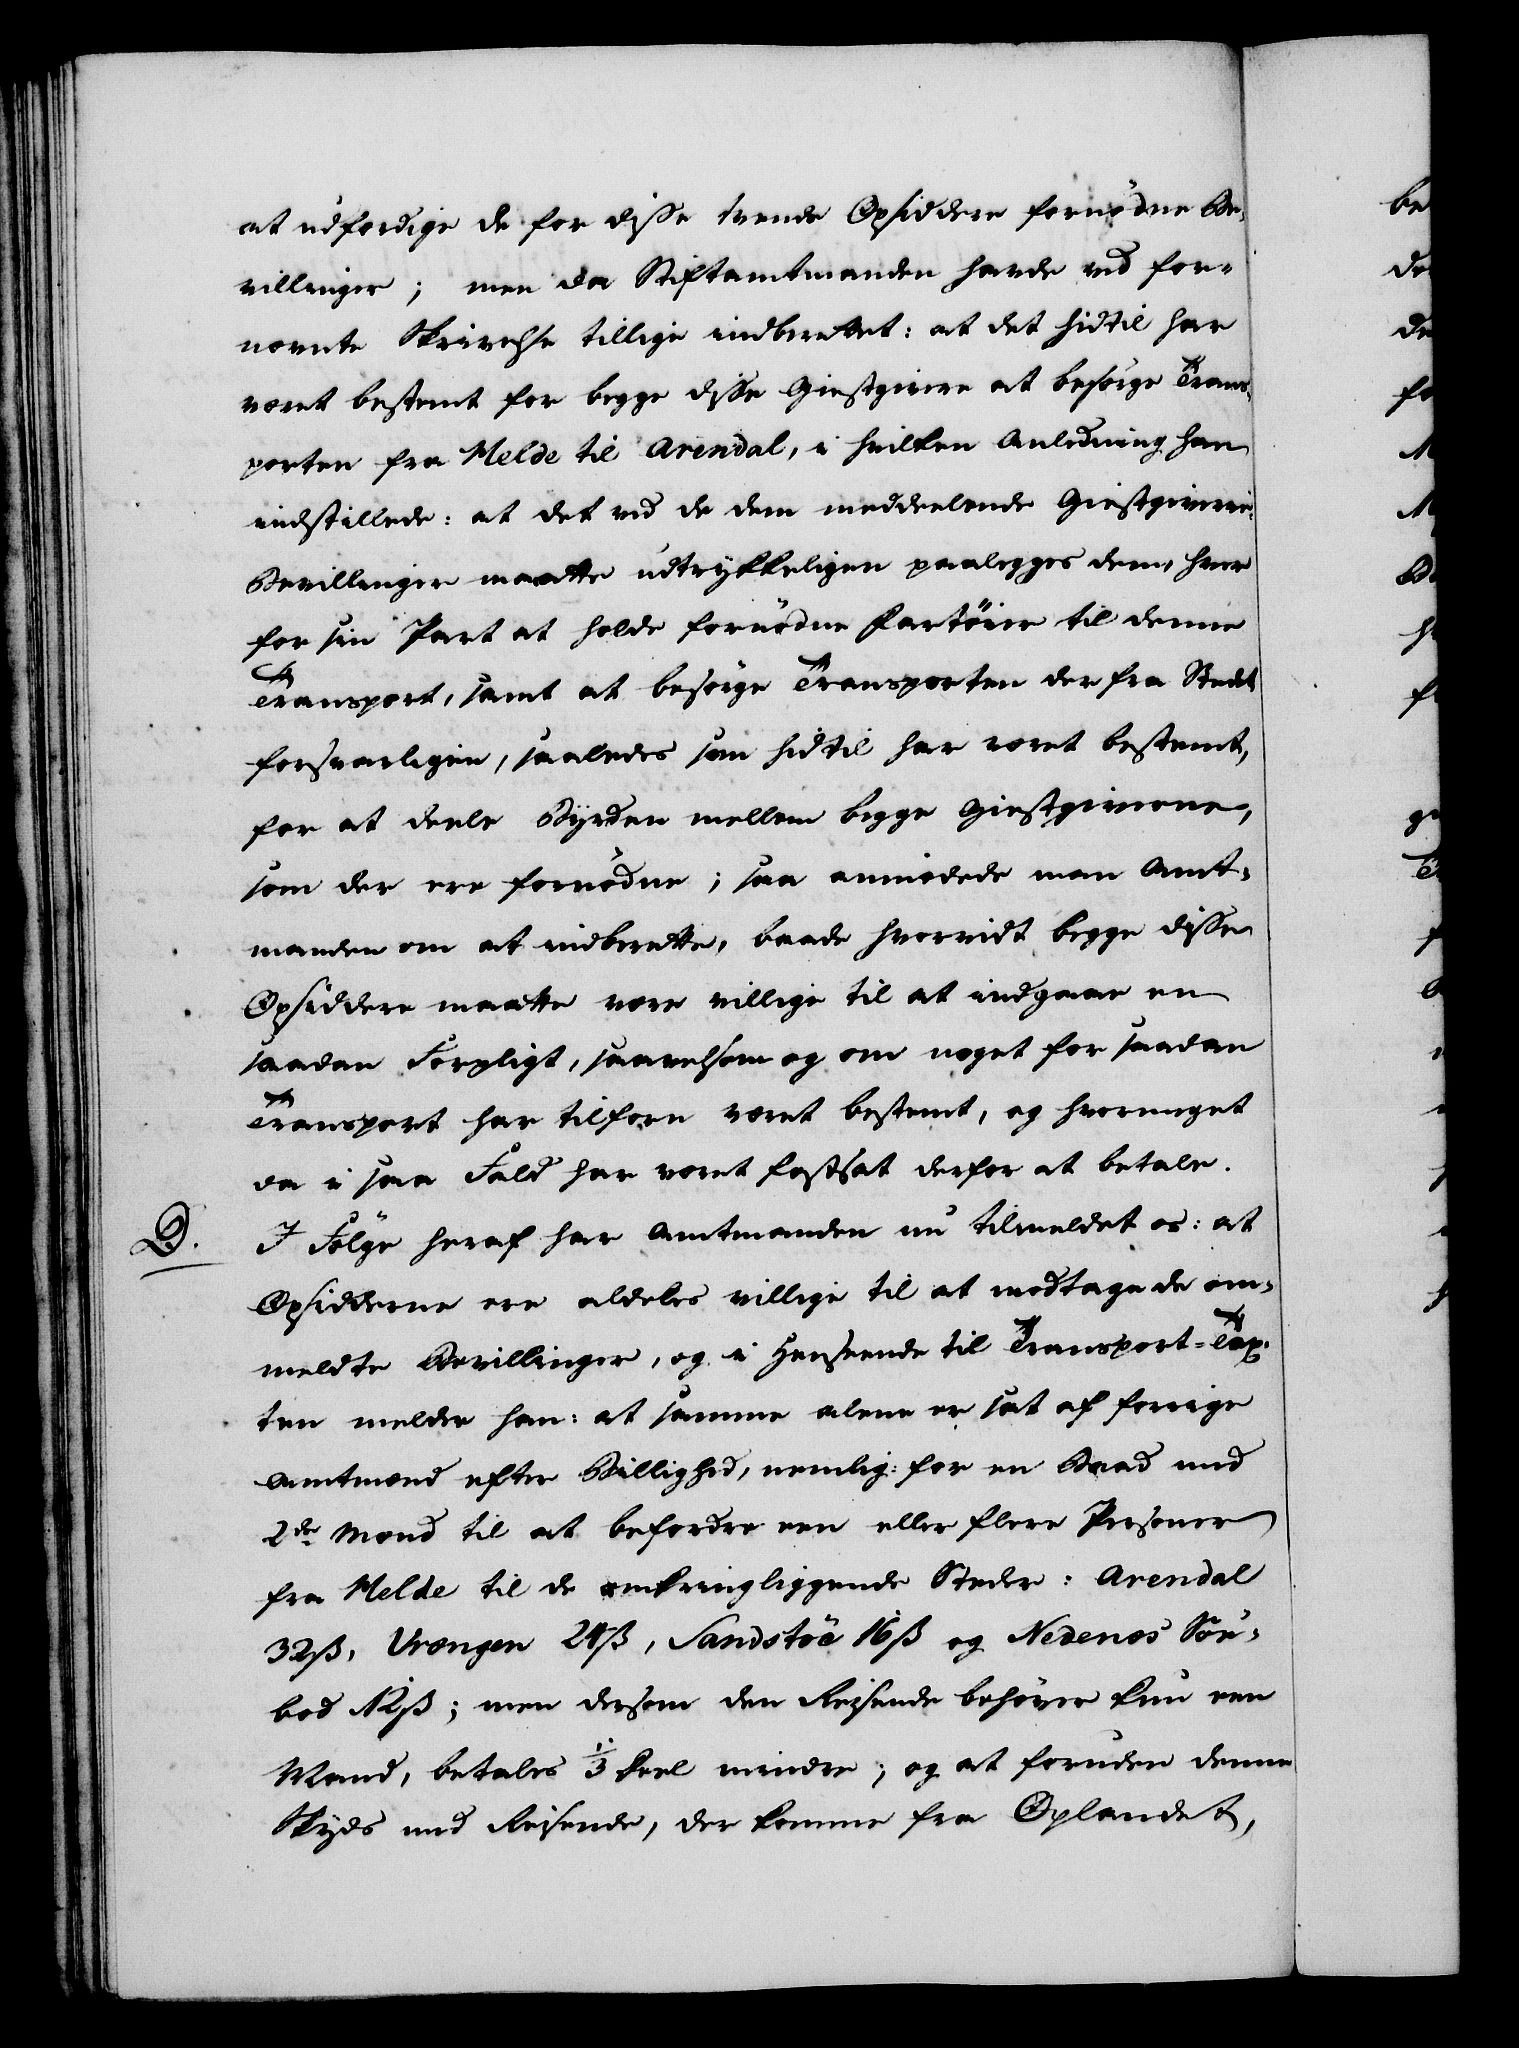 at udfærdige de for disse tvende Opsiddere fornødne Be-
villinger; men da Stiftamtmanden havde ved for-
nevnte Skrivelse tillige indberettet: at det hidtil har
været bestemt for begge disse Giestgivere at besørge Trans-
porten fra Helde til Arendal, i hvilken Anledning han
indstillede: at det ved de dem meddeelende Giestgiverie-
Bevillinger maatte udtrykkeligen paalegges dem, hver
for sin Part at holde fornødne Fartøier til denne
Transport, samt at besørge Transporten der fra Stedet
forsvarligen, saaledes som hidtil har været bestemt,
for at deele Byrden mellem begge Giestgiverne,
som der ere fornødne; saa anmodede man Amt-
manden om at indberette, baade hvorvidt begge disse
Opsiddere maatte være villige til at indgaae en
saadan Forpligt, saavelsom og om noget for saadan
Transport har tilforn været bestemt, og hvormeget
da i saa Fald har været fastsat derfor at betale.
D. I Følge heraf har Amtmanden nu tilmeldet os: at
Opsidderne ere aldeles villige til at modtage de om-
meldte Bevillinger, og i Henseende til Transport-Tax-
ten melder han: at samme alene er sat af forrige
Amtmænd efter Billighed, nemlig: for en Baad med
2de Mænd til at befordre een eller flere Personer
fra Helde til de omkringliggende Steder: Arendal
32ß, Vrængen 24ß, Sandstøe 16ß og Nedenes Søe-
bod 12ß; men dersom den Reisende behøver kun een
Mand, betales 1/3 Deel mindre; og at foruden denne
Skyds med Reisende, der komme fra Oplandet,